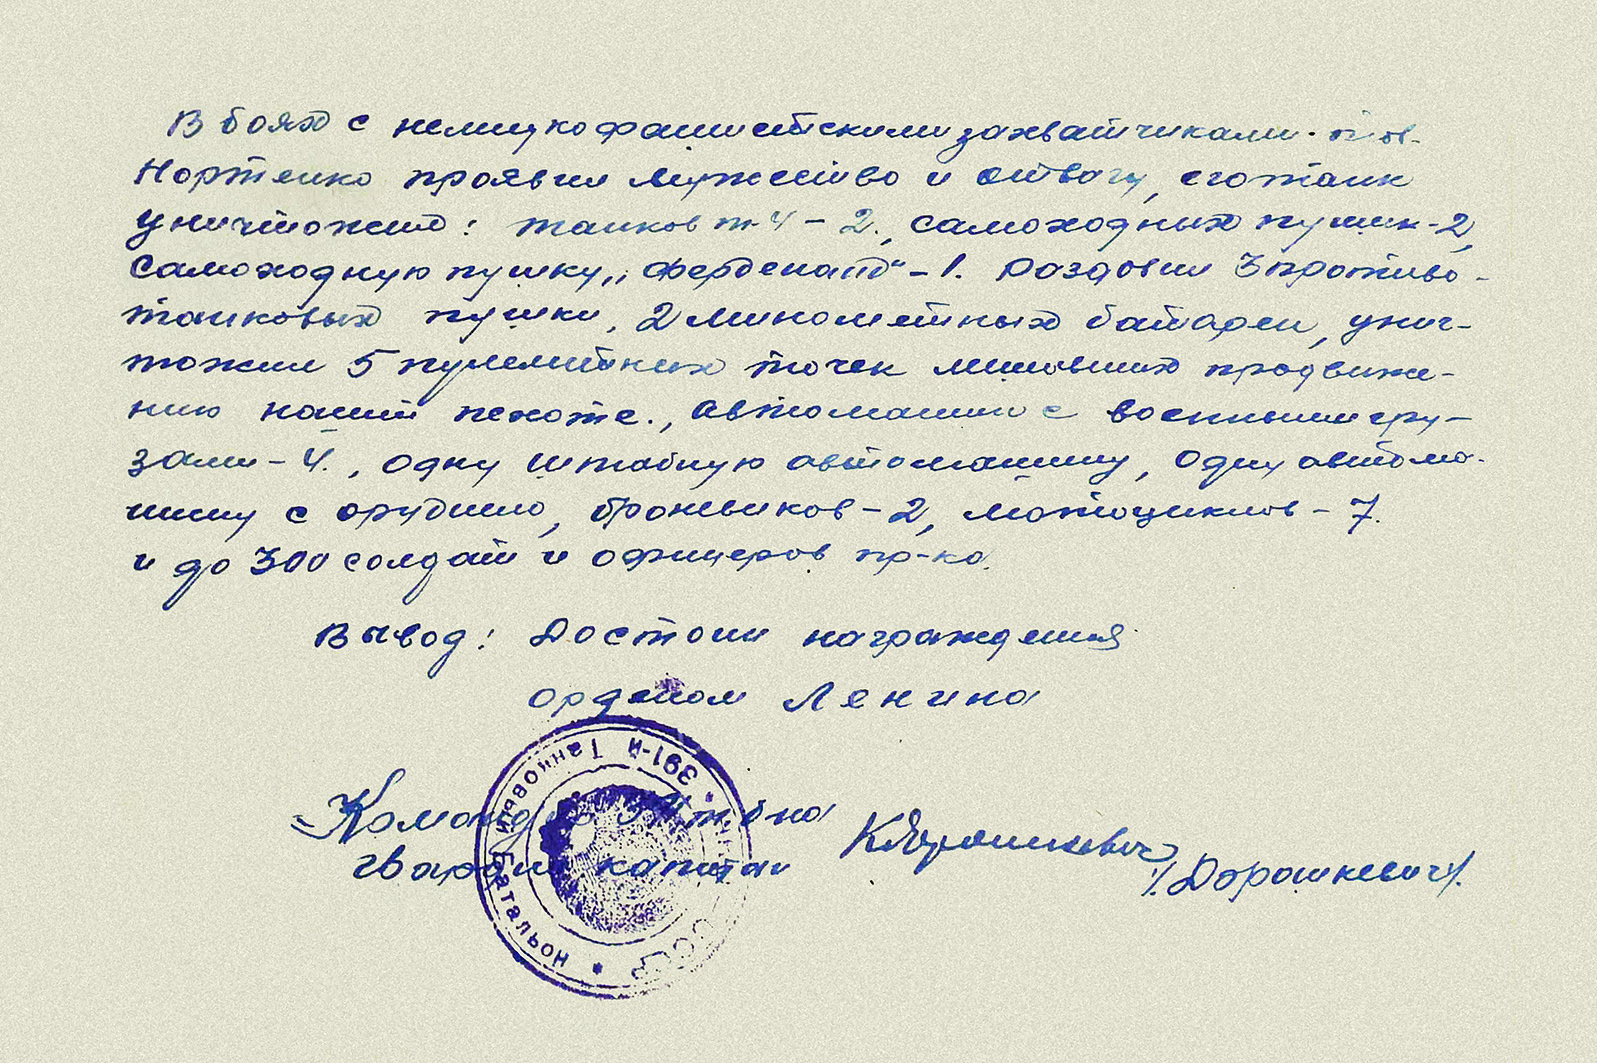 В боях с немецко фашистскими захватчиками тов.
Нортенко проявил мужество и отвагу, его танк
уничтожил: танков т-4 – 2., самоходных пушек-2,
самоходную пушку „Ферденанд“ – 1. Раздавил 3 противо-
танковых пушки, 2 минометных батареи, унич-
тожил 5 пулеметных точек мешавших продвиже-
нию нашей пехоте., автомашин с военными гру-
зами – 4., одну штабную автомашину, одну автома-
шину с орудием, броневиков – 2, мотоциклов – 7.
и до 300 солдат и офицеров пр-ка.
Вывод: Достоин награждения
орденом Ленина
Командир 3 т. б-на
гвардии капитан
/Дорашкевич/.
391-й Танковый Батальон
СССР